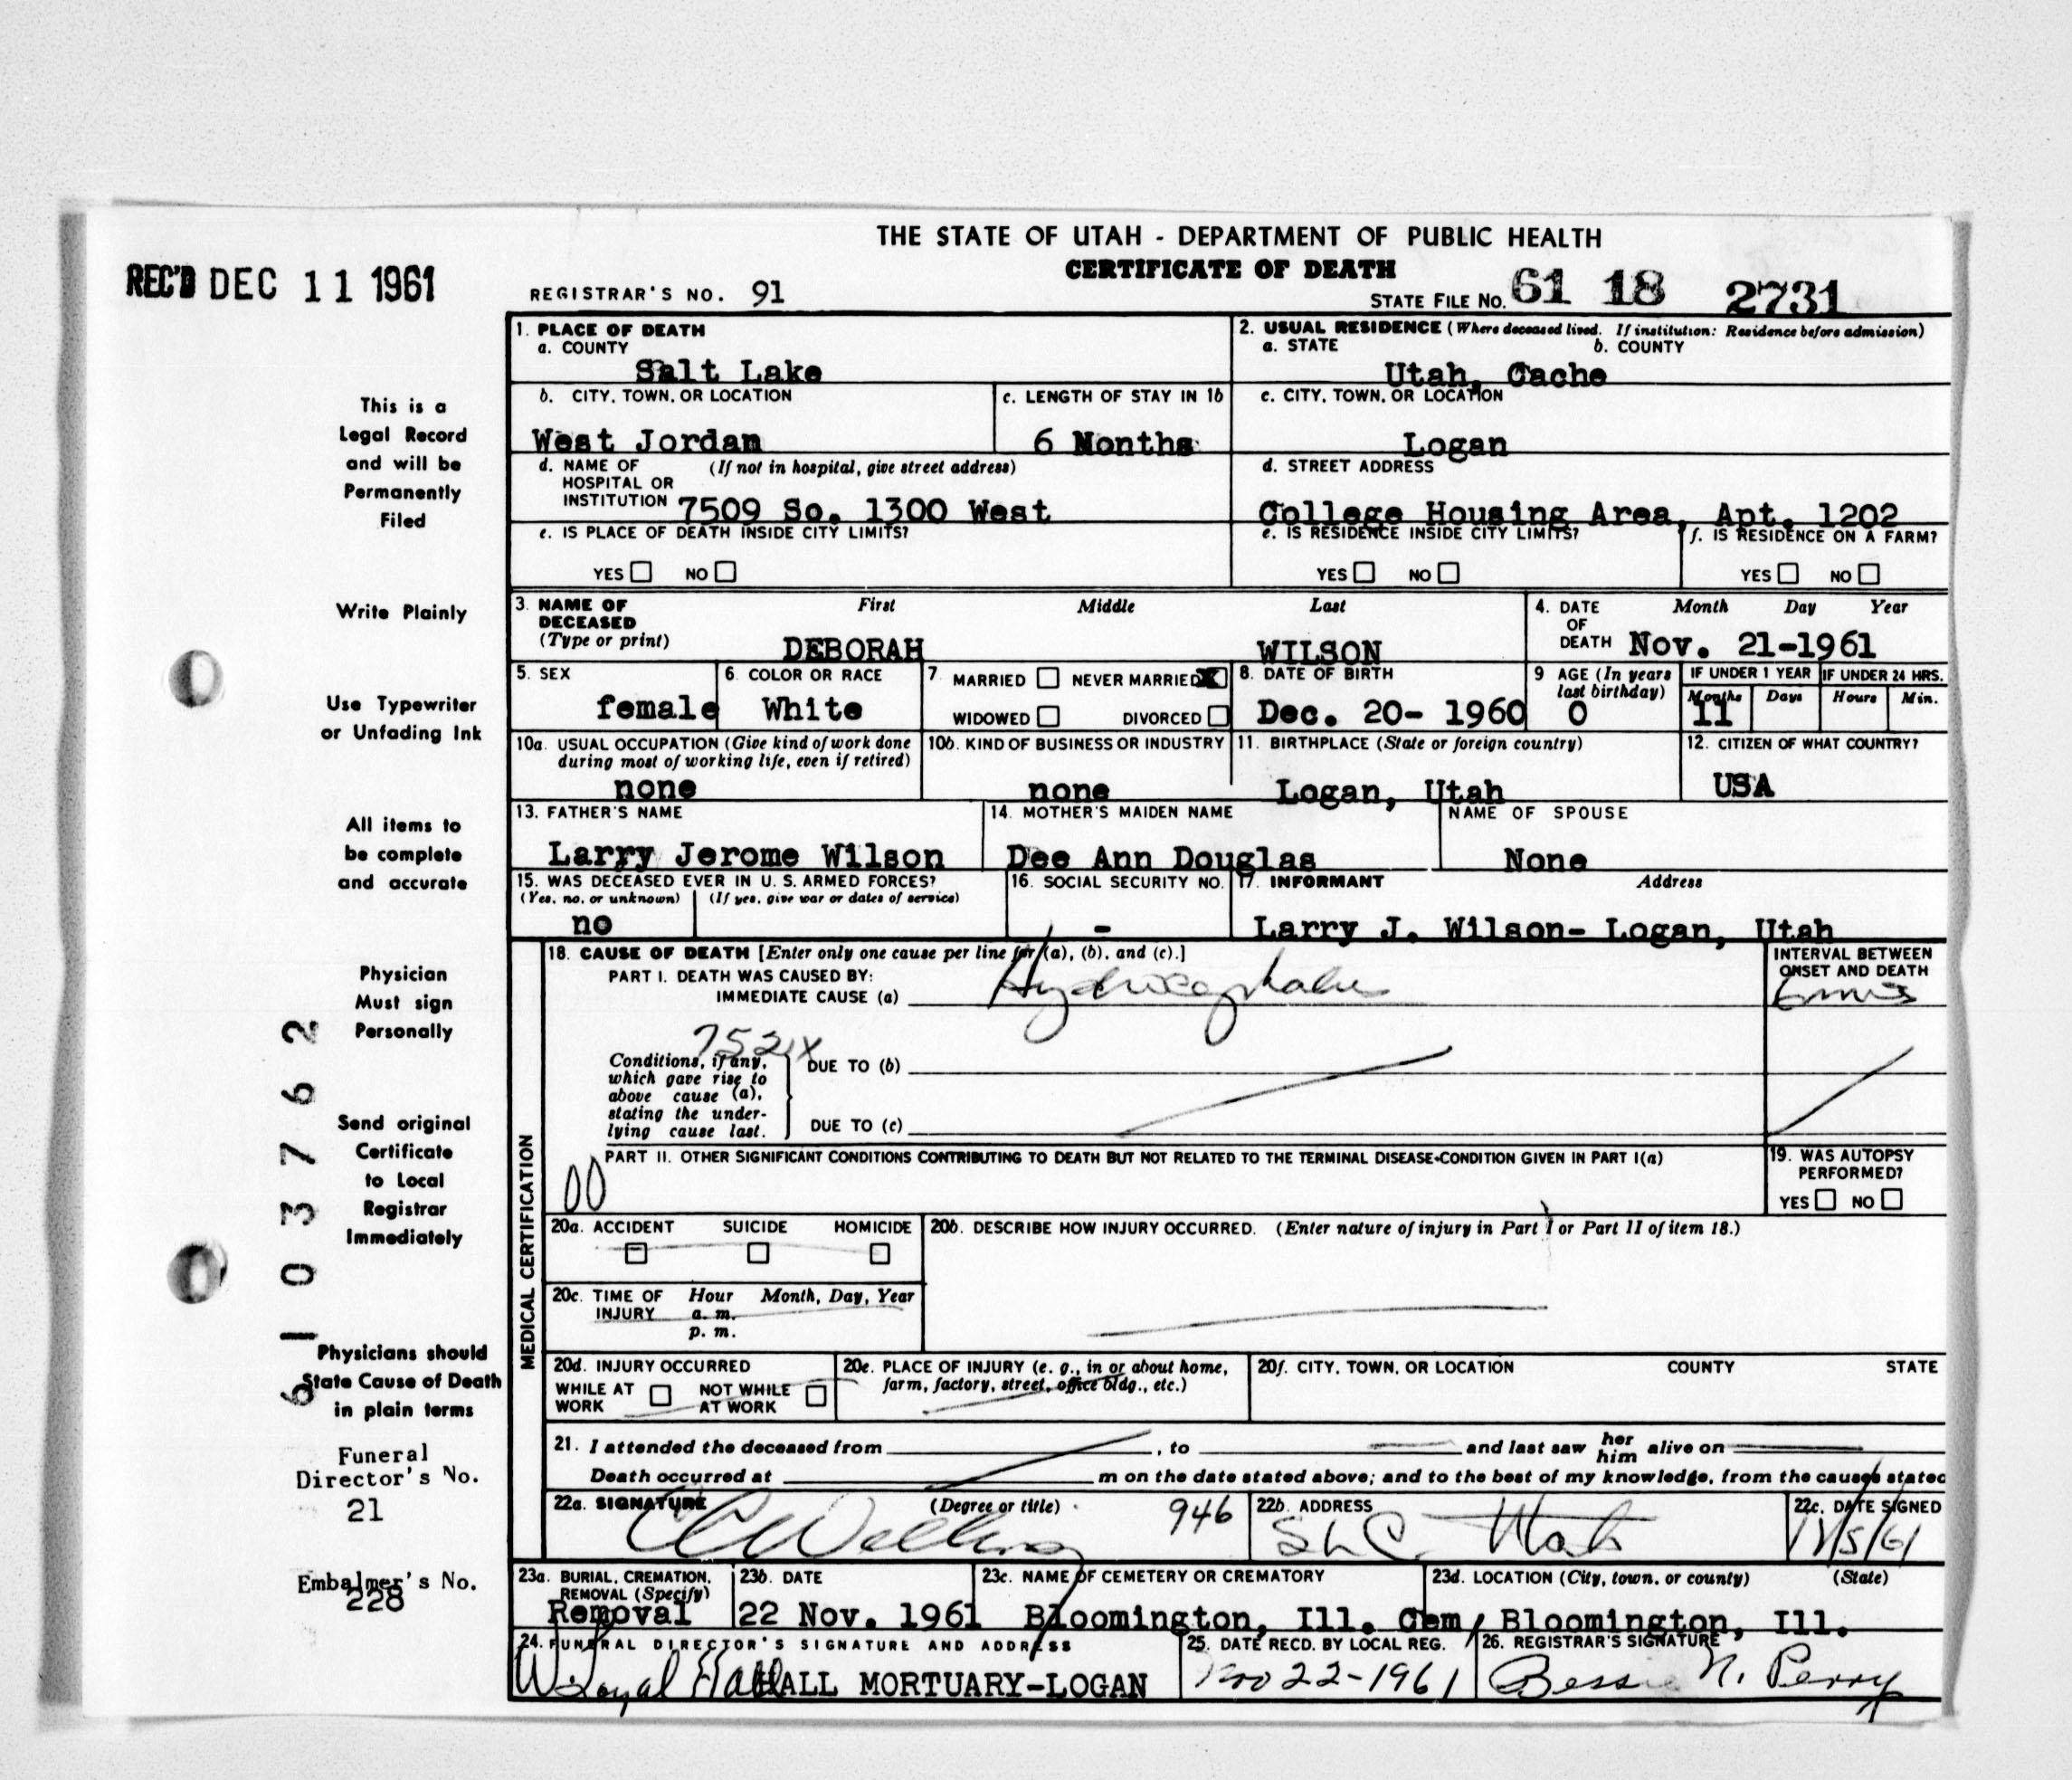 THE STATE OF UTAH - DEPARTMENT OF PUBLIC HEALTH
CERTIFICATE OF DEATH
REC'D DEC 11 1961
REGISTRAR'S NO. 91
STATE FILE NO. 61 18 2731
This is a
Legal Record
and will be
Permanently
Filed
Write Plainly
Use Typewriter
or Unfading Ink
All items to
be complete
and accurate
Physician
Must sign
Personally
Send original
Certificate
to Local
Registrar
Immediately
Physicians should
State Cause of Death
in plain terms
Funeral
Director's No.
21
Embalmer's No.
228
61037662
1. PLACE OF DEATH
a. COUNTY
Salt Lake
2. USUAL RESIDENCE (Where deceased lived. If institution: Residence before admission)
a. STATE b. COUNTY
Utah, Cache
b. CITY, TOWN, OR LOCATION
West Jordan
c. LENGTH OF STAY IN 1b
6 Months
c. CITY, TOWN, OR LOCATION
Logan
d. NAME OF (If not in hospital, give street address)
HOSPITAL OR
INSTITUTION 7509 So. 1300 West
d. STREET ADDRESS
College Housing Area, Apt. 1202
e. IS PLACE OF DEATH INSIDE CITY LIMITS?
YES NO
e. IS RESIDENCE INSIDE CITY LIMITS?
YES NO
f. IS RESIDENCE ON A FARM?
YES NO
3. NAME OF First Middle Last
DECEASED
(Type or print) DEBORAH WILSON
4. DATE Month Day Year
OF
DEATH Nov. 21-1961
5. SEX
female
6. COLOR OR RACE
White
7. MARRIED NEVER MARRIED X
WIDOWED DIVORCED
8. DATE OF BIRTH
Dec. 20- 1960
9 AGE (In years
last birthday)
0
IF UNDER 1 YEAR
Months Days
11
IF UNDER 24 HRS.
Hours Min.
10a. USUAL OCCUPATION (Give kind of work done
during most of working life, even if retired)
none
10b. KIND OF BUSINESS OR INDUSTRY
none
11. BIRTHPLACE (State or foreign country)
Logan, Utah
12. CITIZEN OF WHAT COUNTRY?
USA
13. FATHER'S NAME
Larry Jerome Wilson
14. MOTHER'S MAIDEN NAME
Dee Ann Douglas
NAME OF SPOUSE
None
15. WAS DECEASED EVER IN U. S. ARMED FORCES?
(Yes, no, or unknown) (If yes, give war or dates of service)
no
16. SOCIAL SECURITY NO.
-
17. INFORMANT Address
Larry J. Wilson- Logan, Utah
MEDICAL CERTIFICATION
18. CAUSE OF DEATH [Enter only one cause per line for (a), (b), and (c).]
PART I. DEATH WAS CAUSED BY:
IMMEDIATE CAUSE (a) Hydrocephalus
INTERVAL BETWEEN
ONSET AND DEATH
752
Conditions, if any,
which gave rise to
above cause (a),
stating the under-
lying cause last.
DUE TO (b)
DUE TO (c)
PART II. OTHER SIGNIFICANT CONDITIONS CONTRIBUTING TO DEATH BUT NOT RELATED TO THE TERMINAL DISEASE CONDITION GIVEN IN PART I(a)
00
19. WAS AUTOPSY
PERFORMED?
YES NO
20a. ACCIDENT SUICIDE HOMICIDE
20b. DESCRIBE HOW INJURY OCCURRED. (Enter nature of injury in Part I or Part II of item 18.)
20c. TIME OF Hour Month, Day, Year
INJURY a. m.
p. m.
20d. INJURY OCCURRED
WHILE AT NOT WHILE
WORK AT WORK
20e. PLACE OF INJURY (e. g., in or about home,
farm, factory, street, office bldg., etc.)
20f. CITY, TOWN, OR LOCATION COUNTY STATE
21. I attended the deceased from , to and last saw her him alive on
Death occurred at m on the date stated above; and to the best of my knowledge, from the causes stated
22a. SIGNATURE (Degree or title) 946
22b. ADDRESS
SLC Utah
22c. DATE SIGNED
12/5/61
23a. BURIAL, CREMATION,
REMOVAL (Specify)
Removal
23b. DATE
22 Nov. 1961
23c. NAME OF CEMETERY OR CREMATORY
Bloomington, Ill. Cem
23d. LOCATION (City, town, or county) (State)
Bloomington, Ill.
24. FUNERAL DIRECTOR'S SIGNATURE AND ADDRESS
W. Loyal Hall HALL MORTUARY-LOGAN
25. DATE RECD. BY LOCAL REG.
Nov 22-1961
26. REGISTRAR'S SIGNATURE
Bessie N. Perry